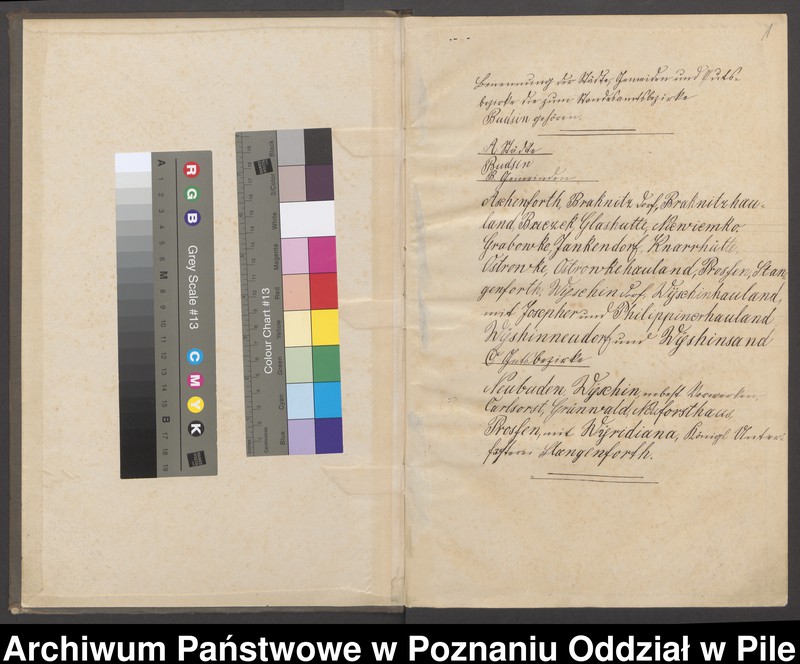 1
Benennung der Städte, Gemeinden und Guts-
bezirke die zum Standesamtsbezirke
Budsin gehören.
A Städte
Budsin
B Gemeinden
Aschenforth, Braknitz dorf, Braknitzhau-
land, Brzezek, Glashutte,
Grabowko, Jankendorf, Knarrhütte,
Ostrowke, Ostrowkehauland, Prosfen, Stan-
genforth, Wyschin dorf, Wyschinhauland,
mit Josepher und Philippinerhauland
Wyshinneudorf und Wyshinsand
C Gutsbezirke
Neubuden, Wyschin, nebst Vorwerken,
Carlsorst, Grünwald, Neuforsthaus,
Prosfen, mit Wyridiana, Königl Unter-
Stangenforth.
A 1 2 3 4 5 6 M 8 9 10 11 12 13 14 15 B 17 18 19
R G B Grey Scale #13 C M Y K
Colour Chart #13
Blue Cyan Green Yellow Red Magenta White 3/Color Black
Archiwum Państwowe w Poznaniu Oddział w Pile